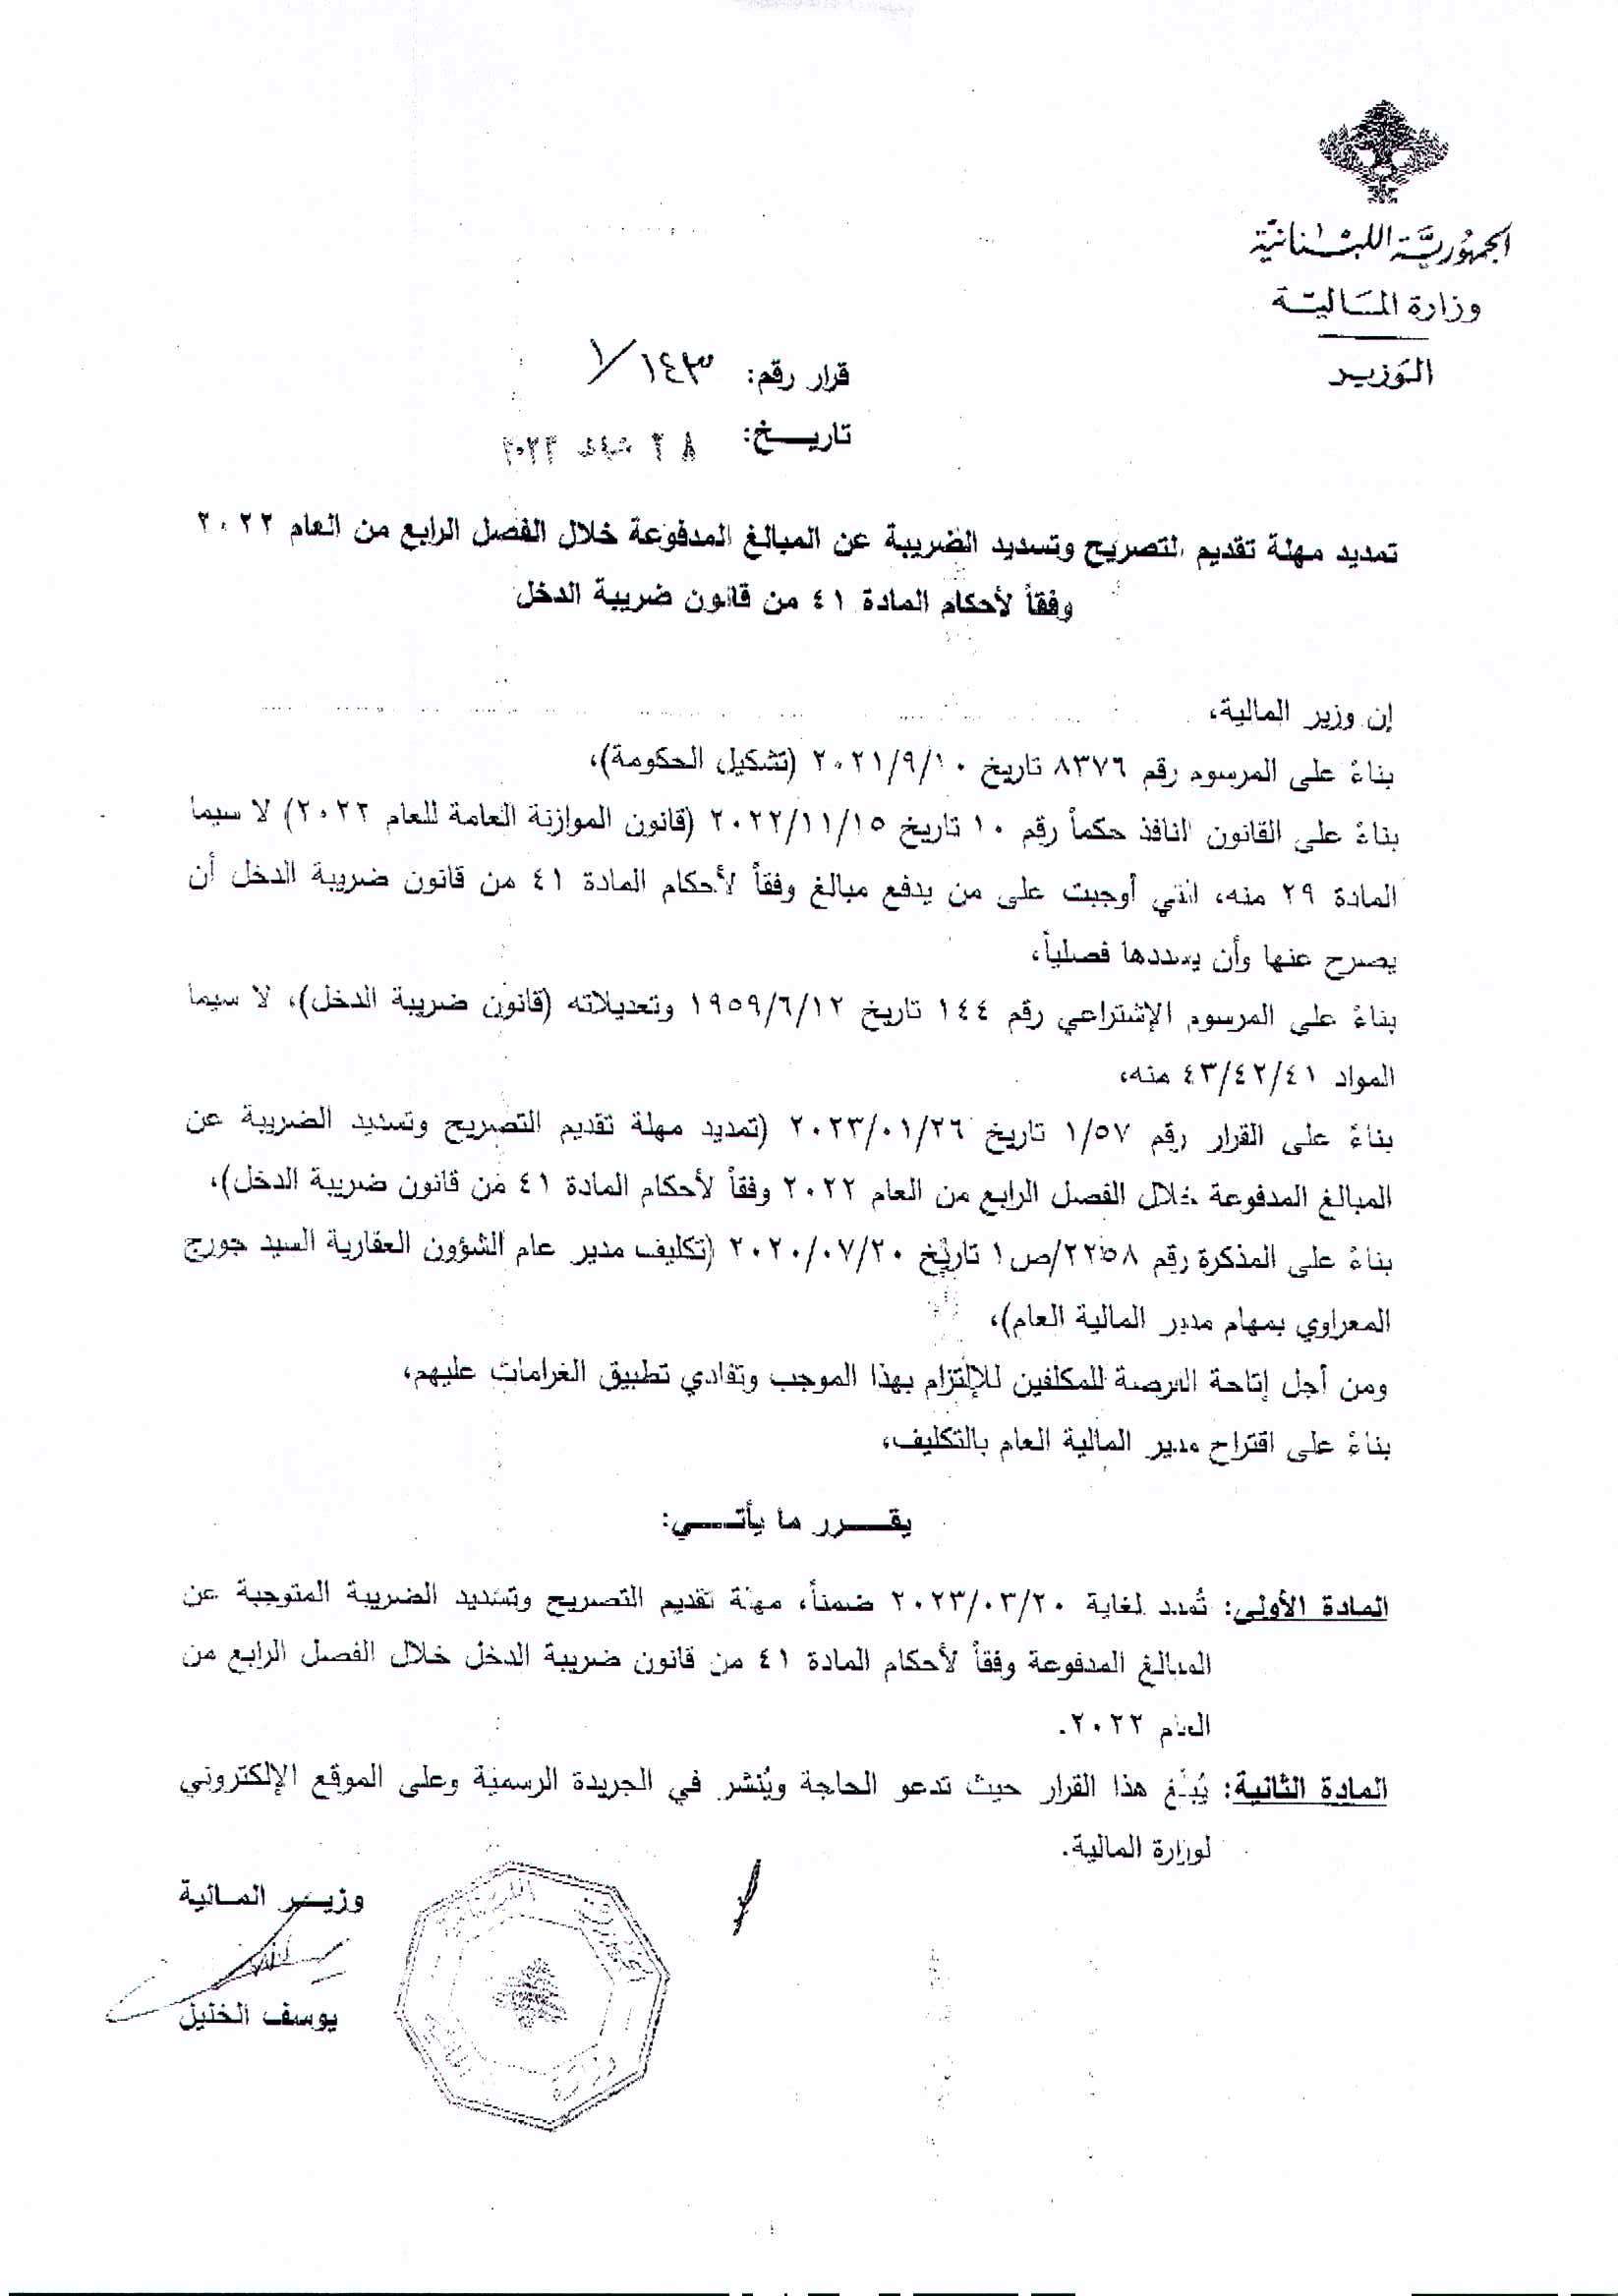 الجمهورية اللبنانية
وزارة المالية
الوزير
قرار رقم: ١٤٣/١
تاريـــخ: ٢٨ شباط ٢٠٢٣
تمديد مهلة تقديم التصريح وتسديد الضريبة عن المبالغ المدفوعة خلال الفصل الرابع من العام ٢٠٢٢
وفقاً لأحكام المادة ٤١ من قانون ضريبة الدخل
إن وزير المالية،
بناءً على المرسوم رقم ٨٣٧٦ تاريخ ٢٠٢١/٩/١٠ (تشكيل الحكومة)،
بناءً على القانون النافذ حكماً رقم ١٠ تاريخ ٢٠٢٢/١١/١٥ (قانون الموازنة العامة للعام ٢٠٢٢) لا سيما
المادة ٢٩ منه، التي أوجبت على من يدفع مبالغ وفقاً لأحكام المادة ٤١ من قانون ضريبة الدخل أن
يصرح عنها وأن يسددها فصلياً،
بناءً على المرسوم الإشتراعي رقم ١٤٤ تاريخ ١٩٥٩/٦/١٢ وتعديلاته (قانون ضريبة الدخل)، لا سيما
المواد ٤٣/٤٢/٤١ منه،
بناءً على القرار رقم ١/٥٧ تاريخ ٢٠٢٣/٠١/٢٦ (تمديد مهلة تقديم التصريح وتسديد الضريبة عن
المبالغ المدفوعة خلال الفصل الرابع من العام ٢٠٢٢ وفقاً لأحكام المادة ٤١ من قانون ضريبة الدخل)،
بناءً على المذكرة رقم ٢٢٥٨/ص١ تاريخ ٢٠٢٠/٠٧/٢٠ (تكليف مدير عام الشؤون العقارية السيد جورج
المعراوي بمهام مدير المالية العام)،
ومن أجل إتاحة الفرصة للمكلفين للإلتزام بهذا الموجب وتفادي تطبيق الغرامات عليهم،
بناءً على اقتراح مدير المالية العام بالتكليف،
يقـــرر ما يأتـــي:
المادة الأولى: تُمدد لغاية ٢٠٢٣/٠٣/٢٠ ضمناً، مهلة تقديم التصريح وتسديد الضريبة المتوجبة عن
المبالغ المدفوعة وفقاً لأحكام المادة ٤١ من قانون ضريبة الدخل خلال الفصل الرابع من
العام ٢٠٢٢.
المادة الثانية: يُبلّغ هذا القرار حيث تدعو الحاجة ويُنشر في الجريدة الرسمية وعلى الموقع الإلكتروني
لوزارة المالية.
وزيـر المـالية
يوسف الخليل